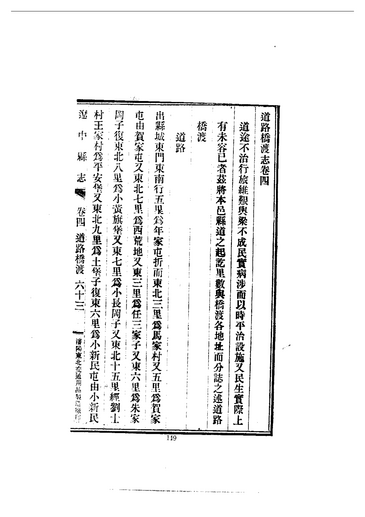 道路橋渡志卷四
道途不治行旅維艱輿梁不成民實病涉而以時平治設施又民生實際上
有未容已者茲將本邑縣道之起訖里數與橋渡各地址而分誌之述道路
橋渡
道路
出縣城東門東南行五里爲年家屯折而東北三里爲馬家村又五里爲賀家
屯由賀家屯又東北七里爲西荒地又東三里爲任三家子又東六里爲朱家
岡子復東北八里爲小黃旗堡又東七里爲小長岡子又東北十五里經劉士
村王家村爲平安堡又東北九里爲土堡子復東六里爲小新民屯由小新民
遼中縣志 卷四 道路橋渡 六十三
119